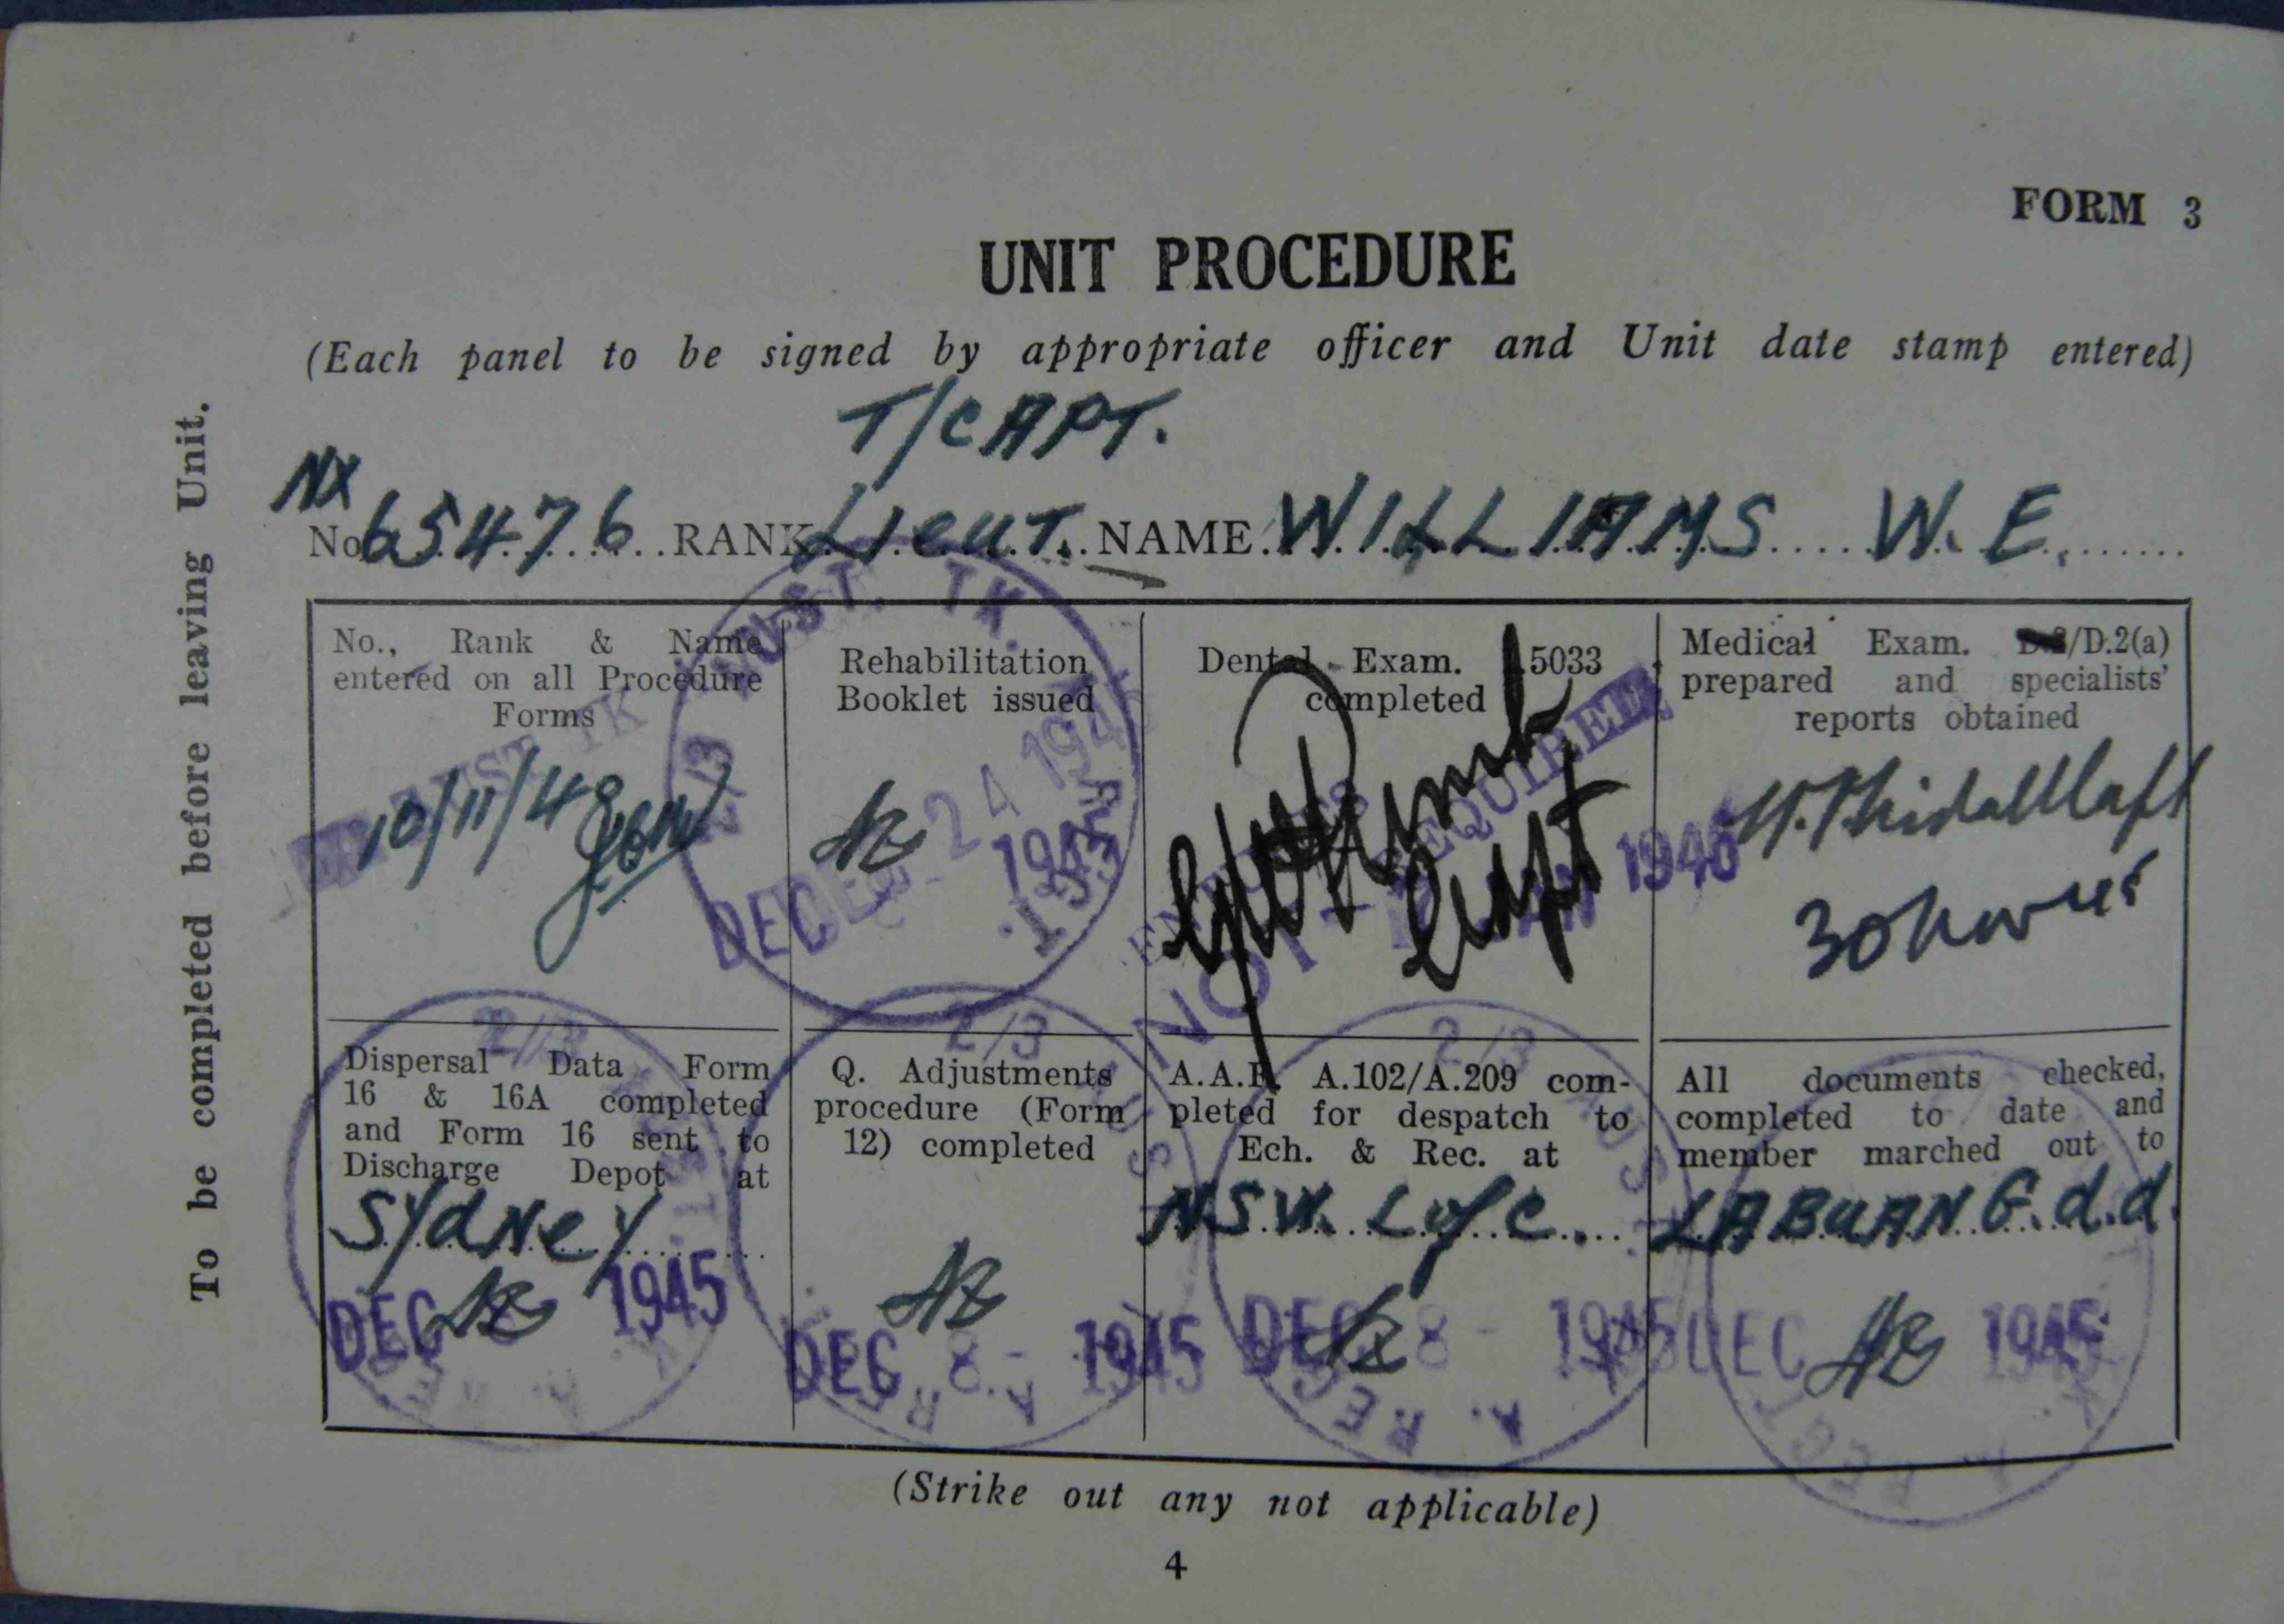 FORM 3
UNIT PROCEDURE
(Each panel to be signed by appropriate officer and Unit date stamp entered)
T/CAPT.
NX
No 65476 RANK Lieut. NAME WILLIAMS W. E.
To be completed before leaving Unit.
No., Rank & Name
entered on all Procedure
Forms
10/11/4
Rehabilitation
Booklet issued
AUST. TK.
24 194
DEC 1945
Dental Exam. 5033
completed
NOT REQUIRED
1946
Capt
Medical Exam. /D.2(a)
prepared and specialists'
reports obtained
30
Dispersal Data Form
16 & 16A completed
and Form 16 sent to
Discharge Depot at
Sydney
2/3
DEC 1945
Q. Adjustments
procedure (Form
12) completed
2/3
DEC 8 - 1945
A.A.F. A.102/A.209 com-
pleted for despatch to
Ech. & Rec. at
N.S.W. L of C.
2/3
DEC 8 - 1945
All documents checked,
completed to date and
member marched out to
LABUAN G.d.d.
DEC 1945
(Strike out any not applicable)
4